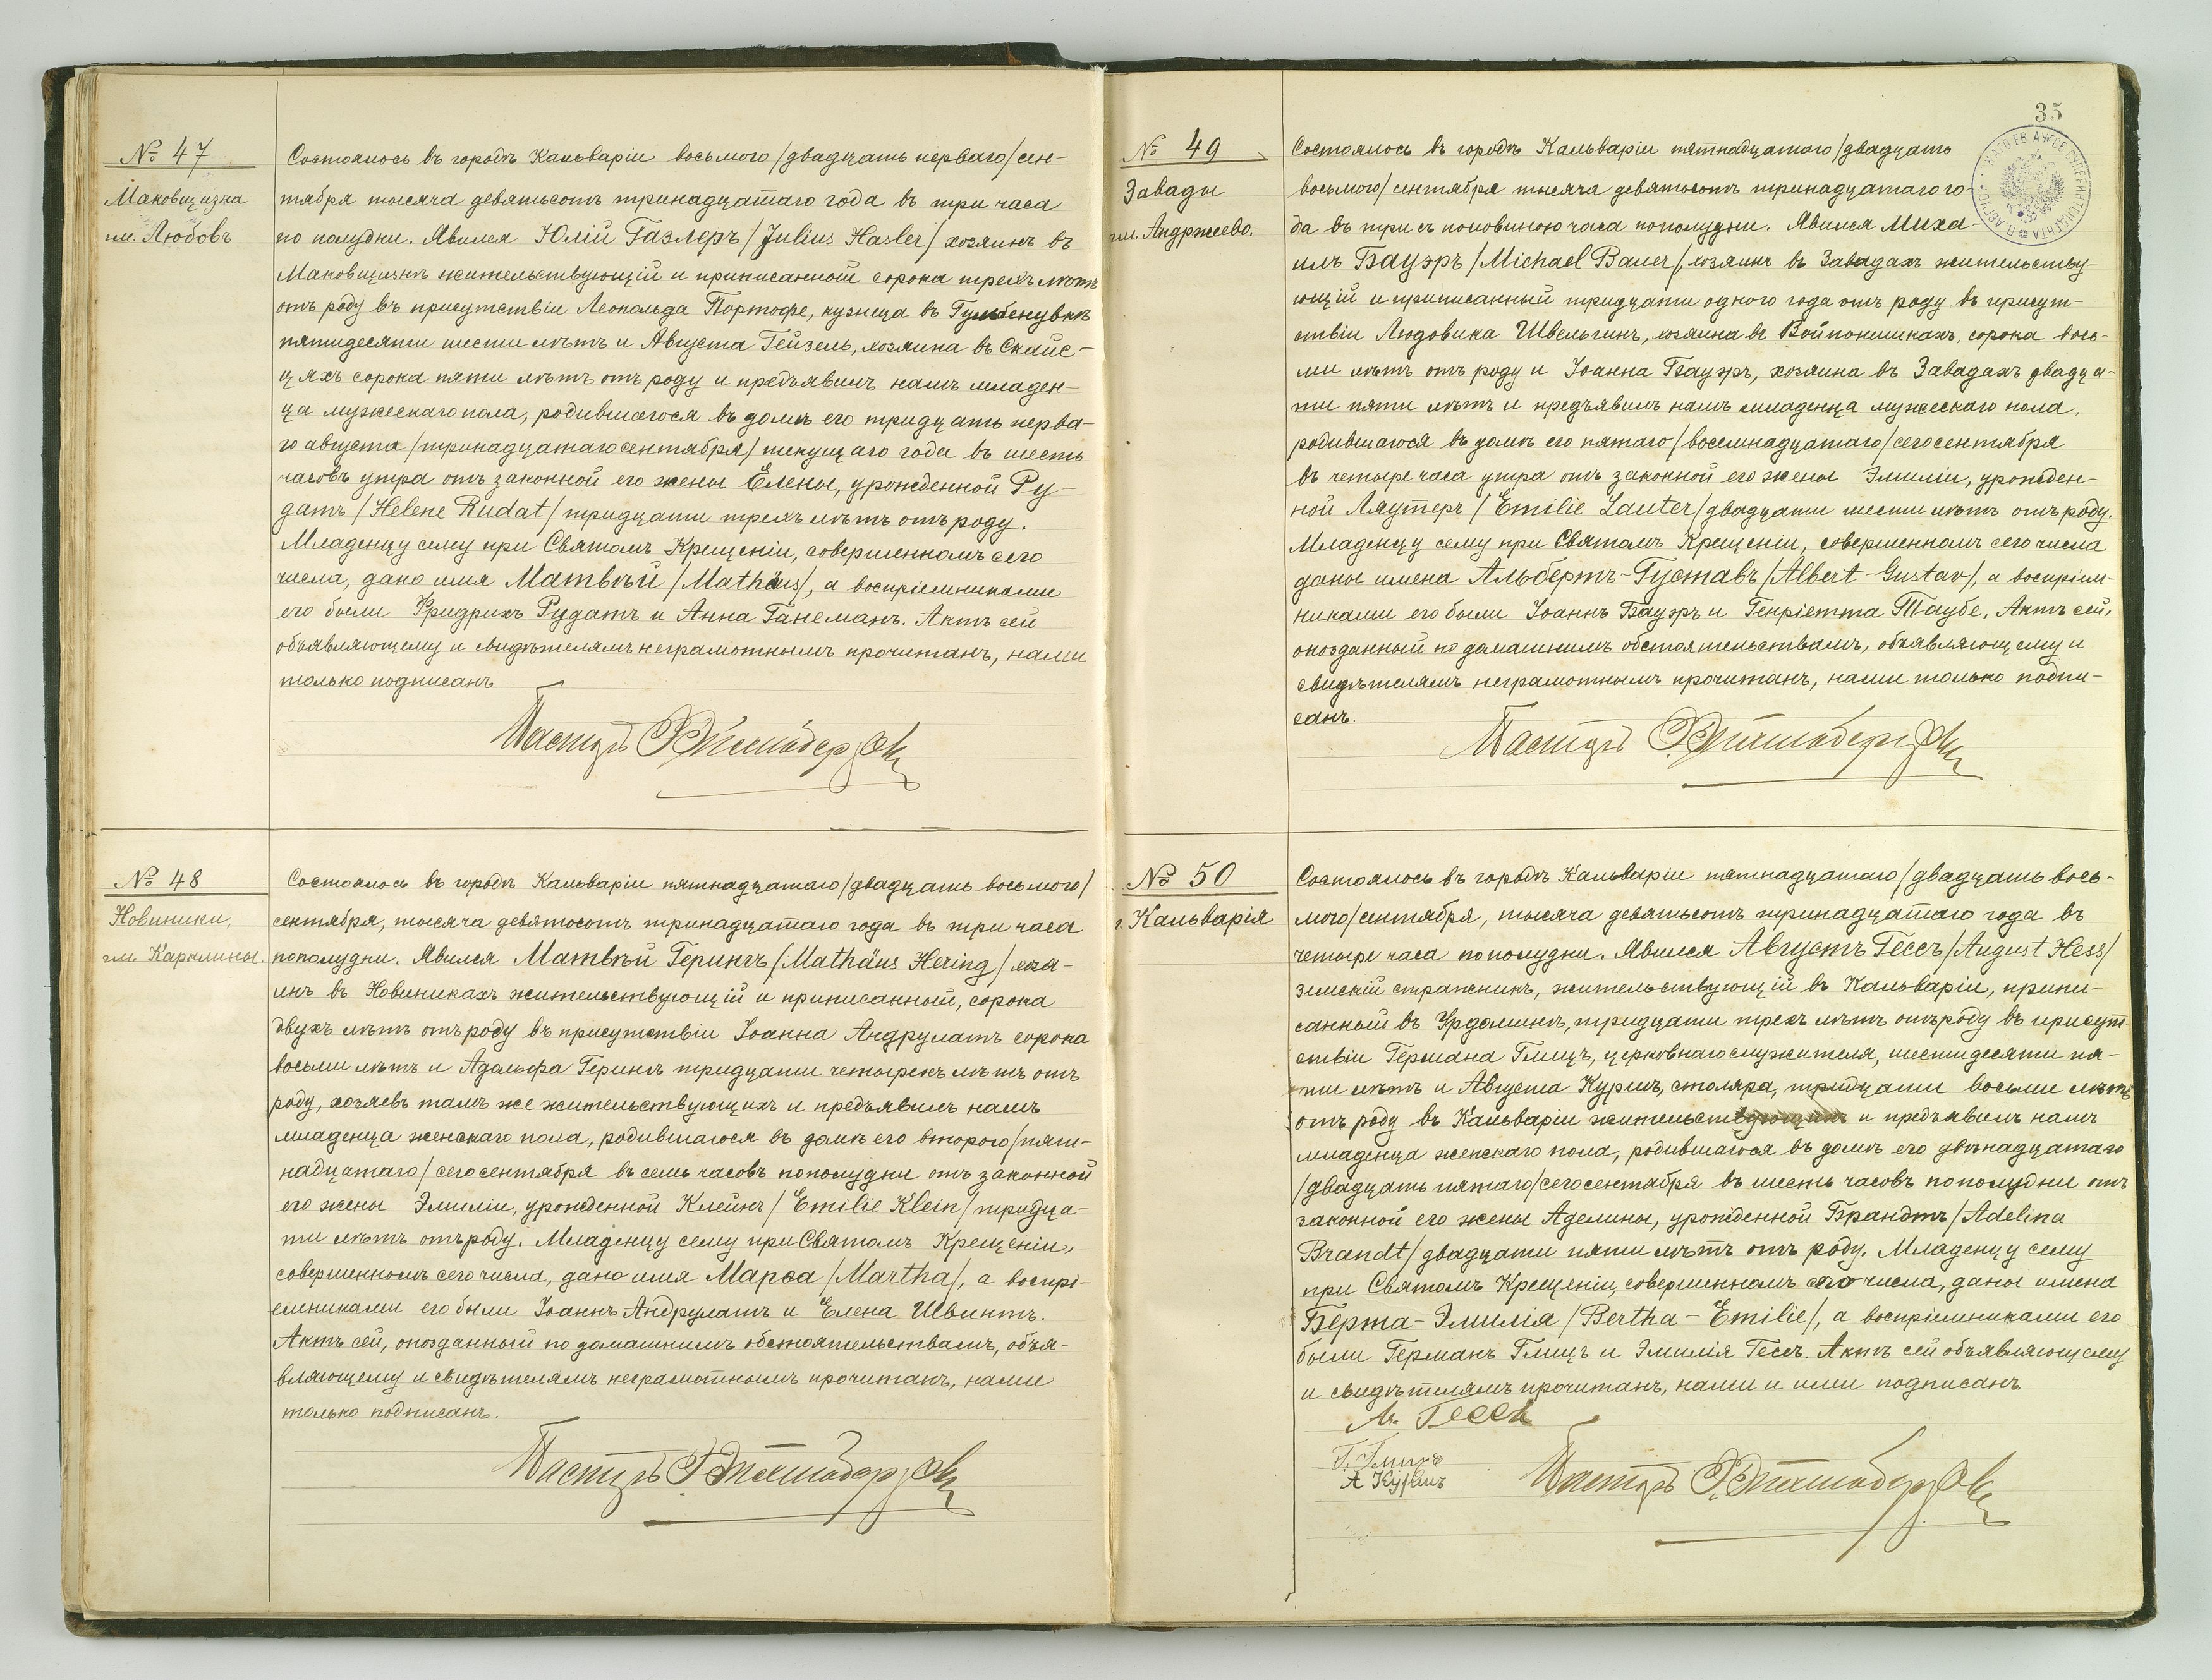 № 47
Маковщизна
гм. Любовъ
Состоялось въ городѣ Кальваріи восьмого /двадцать перваго/ сен-
тября тысяча девятьсотъ тринадцатаго года въ три часа
по полудни. Явился Юлій Газлеръ /Julius Hasler/ хозяинъ въ
Маковщизнѣ жительствующій и приписанный сорока трехъ лѣтъ
отъ роду въ присутствіи Леопольда Портофе, кузнеца въ Гумбенувкѣ
пятидесяти шести лѣтъ и Августа Гейзель, хозяина въ Скайс-
цяхъ сорока пяти лѣтъ отъ роду и предъявилъ намъ младен-
ца мужескаго пола, родившагося въ домѣ его тридцать перва-
го августа /тринадцатаго сентября/ текущаго года въ шесть
часовъ утра отъ законной его жены Елены, урожденной Ру-
датъ /Helene Rudat/ тридцати трехъ лѣтъ отъ роду.
Младенцу сему при Святомъ Крещеніи, совершенномъ сего
числа, дано имя Матвѣй /Mathäus/, а воспріемниками
его были Фридрихъ Рудатъ и Анна Ганеманъ. Актъ сей
объявляющему и свидѣтелямъ неграмотнымъ прочитанъ, нами
только подписанъ
Пасторъ
№ 48
Новиники,
гм. Кирклины
Состоялось въ городѣ Кальваріи пятнадцатаго /двадцать восьмого/
сентября, тысяча девятосотъ тринадцатаго года въ три часа
пополудни. Явился Матвѣй Герингъ /Mathäus Hering/ хозя-
инъ въ Новиникахъ жительствующій и приписанный, сорока
двухъ лѣтъ отъ роду въ присутствіи Іоанна Андрулатъ сорока
восьми лѣтъ и Адольфа Герингъ тридцати четырехъ лѣтъ отъ
роду, хозяевъ тамъ же жительствующихъ и предъявилъ намъ
младенца женскаго пола, родившагося въ домѣ его второго /пят-
надцатаго/ сего сентября въ семь часовъ пополудни отъ законной
его жены Эмиліи, урожденной Клейнъ /Emilie Klein/ тридца-
ти лѣтъ отъ роду. Младенцу сему при Святомъ Крещеніи,
совершенномъ сего числа, дано имя Марѳа /Martha/, а воспрі-
емниками его были Іоаннъ Андрулатъ и Елена Швинтъ.
Актъ сей, опозданный по домашнимъ обстоятельствамъ, объя-
вляющему и свидѣтелямъ неграмотнымъ прочитанъ, нами
только подписанъ.
Пасторъ
35
№ 49
Завады
гм. Андржеево.
Состоялось въ городѣ Кальваріи пятнадцатаго /двадцать
восьмого/ сентября тысяча девятосотъ тринадцатаго го-
да въ три съ половиною часа пополудни. Явился Миха-
илъ Бауэръ /Michael Bauer/, хозяинъ въ Завадахъ жительству-
ющій и приписанный тридцати одного года отъ роду въ присут-
ствіи Людовика Швельгинъ, хозяина въ Войпонишкахъ, сорока вось-
ми лѣтъ отъ роду и Іоанна Бауэръ, хозяина въ Завадахъ двадца-
ти пяти лѣтъ и предъявилъ намъ младенца мужескаго пола,
родившагося въ домѣ его пятаго /восемнадцатаго/ сего сентября
въ четыре часа утра отъ законной его жены Эмиліи, урожден-
ной Ляутеръ /Emilie Lauter/ двадцати шести лѣтъ отъ роду.
Младенцу сему при Святомъ Крещеніи, совершенномъ сего числа
даны имена Альбертъ-Густавъ /Albert-Gustav/, а воспріем-
никами его были Іоаннъ Бауэръ и Генріетта Таубе. Актъ сей,
опозданный по домашнимъ обстоятельствамъ, объявляющему и
свидѣтелямъ неграмотнымъ прочитанъ, нами только подпи-
санъ.
Пасторъ
№ 50
г. Кальварія
Состоялось въ городѣ Кальваріи пятнадцатаго /двадцать вось-
мого/ сентября, тысяча девятьсотъ тринадцатаго года въ
четыре часа пополудни. Явился Августъ Гессъ /August Hess/
земскій стражникъ, жительствующій въ Кальваріи, припи-
санный въ Урдоминѣ, тридцати трехъ лѣтъ отъ роду въ присут-
ствіи Германа Глицъ, церковнаго служителя, шестидесяти пя-
ти лѣтъ и Августа Куришъ, столяра, тридцати восьми лѣтъ
отъ роду въ Кальваріи жительствующихъ и предъявилъ намъ
младенца женскаго пола, родившагося въ домѣ его двѣнадцатаго
/двадцать пятаго/ сего сентября въ шесть часовъ пополудни отъ
законной его жены Аделины, урожденной Брандтъ /Adelina
Brandt/ двадцати пяти лѣтъ отъ роду. Младенцу сему
при Святомъ Крещеніи, совершенномъ сего числа, даны имена
Берта-Эмилія /Bertha-Emilie/, а воспріемниками его
были Германъ Глицъ и Эмилія Гессъ. Актъ сей объявляющему
и свидѣтелямъ прочитанъ, нами и ими подписанъ
А. Гессъ
Г. Глицъ
А Куришъ
Пасторъ